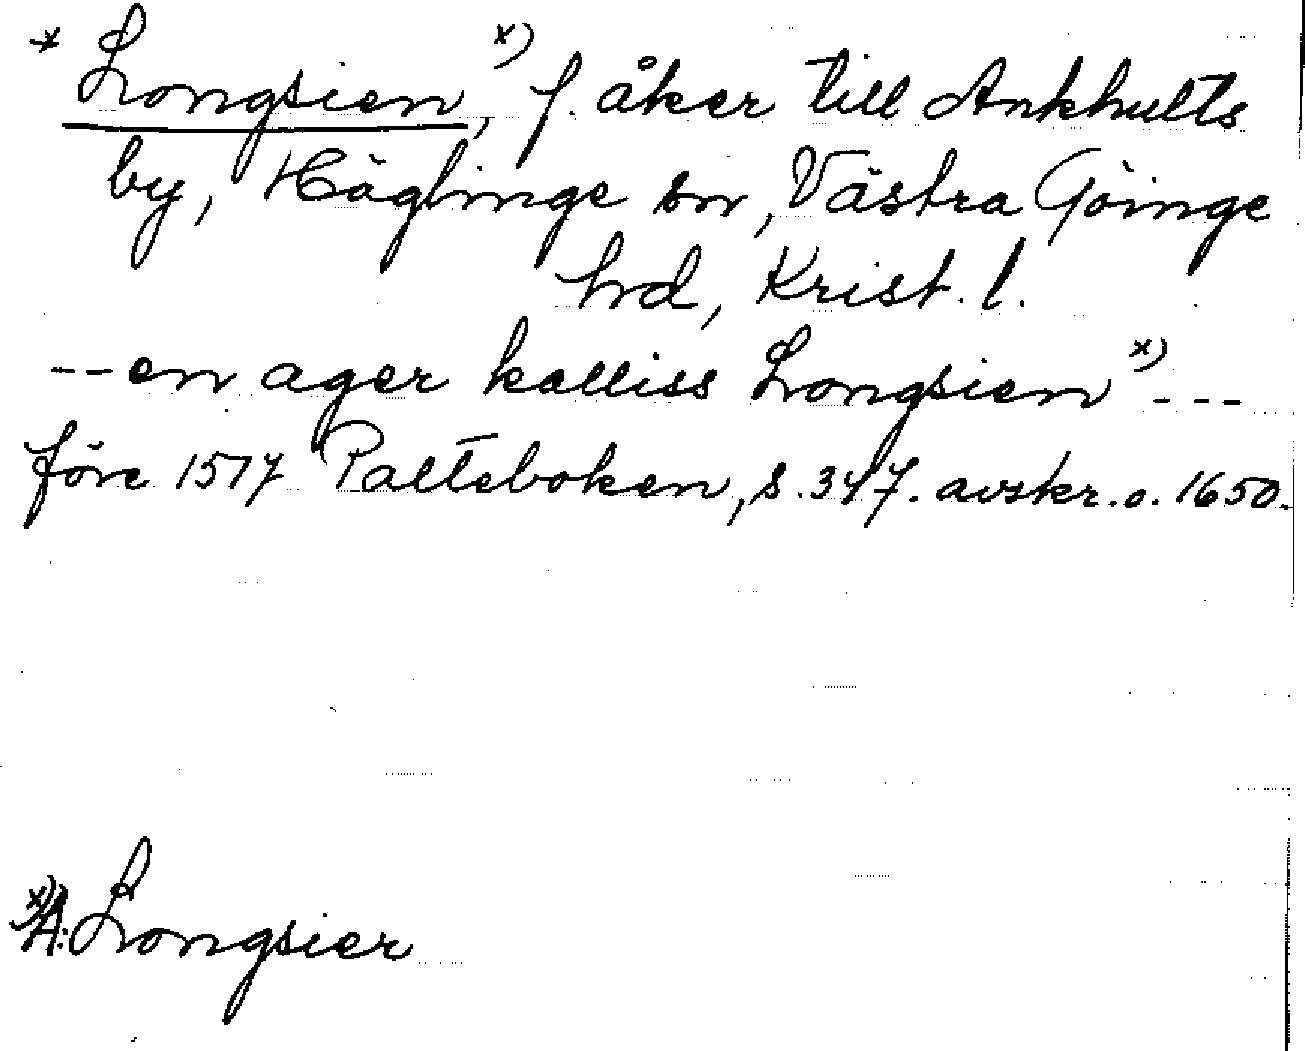 * Longsien, x) f. åker till Ankhults
by, Häglinge sn, Västra Göinge
hrd, Krist. l.
-- en ager kalliss Longsien x) ---
före 1517 Palteboken, s. 347. avskr. o. 1650.
x) A: Longsier